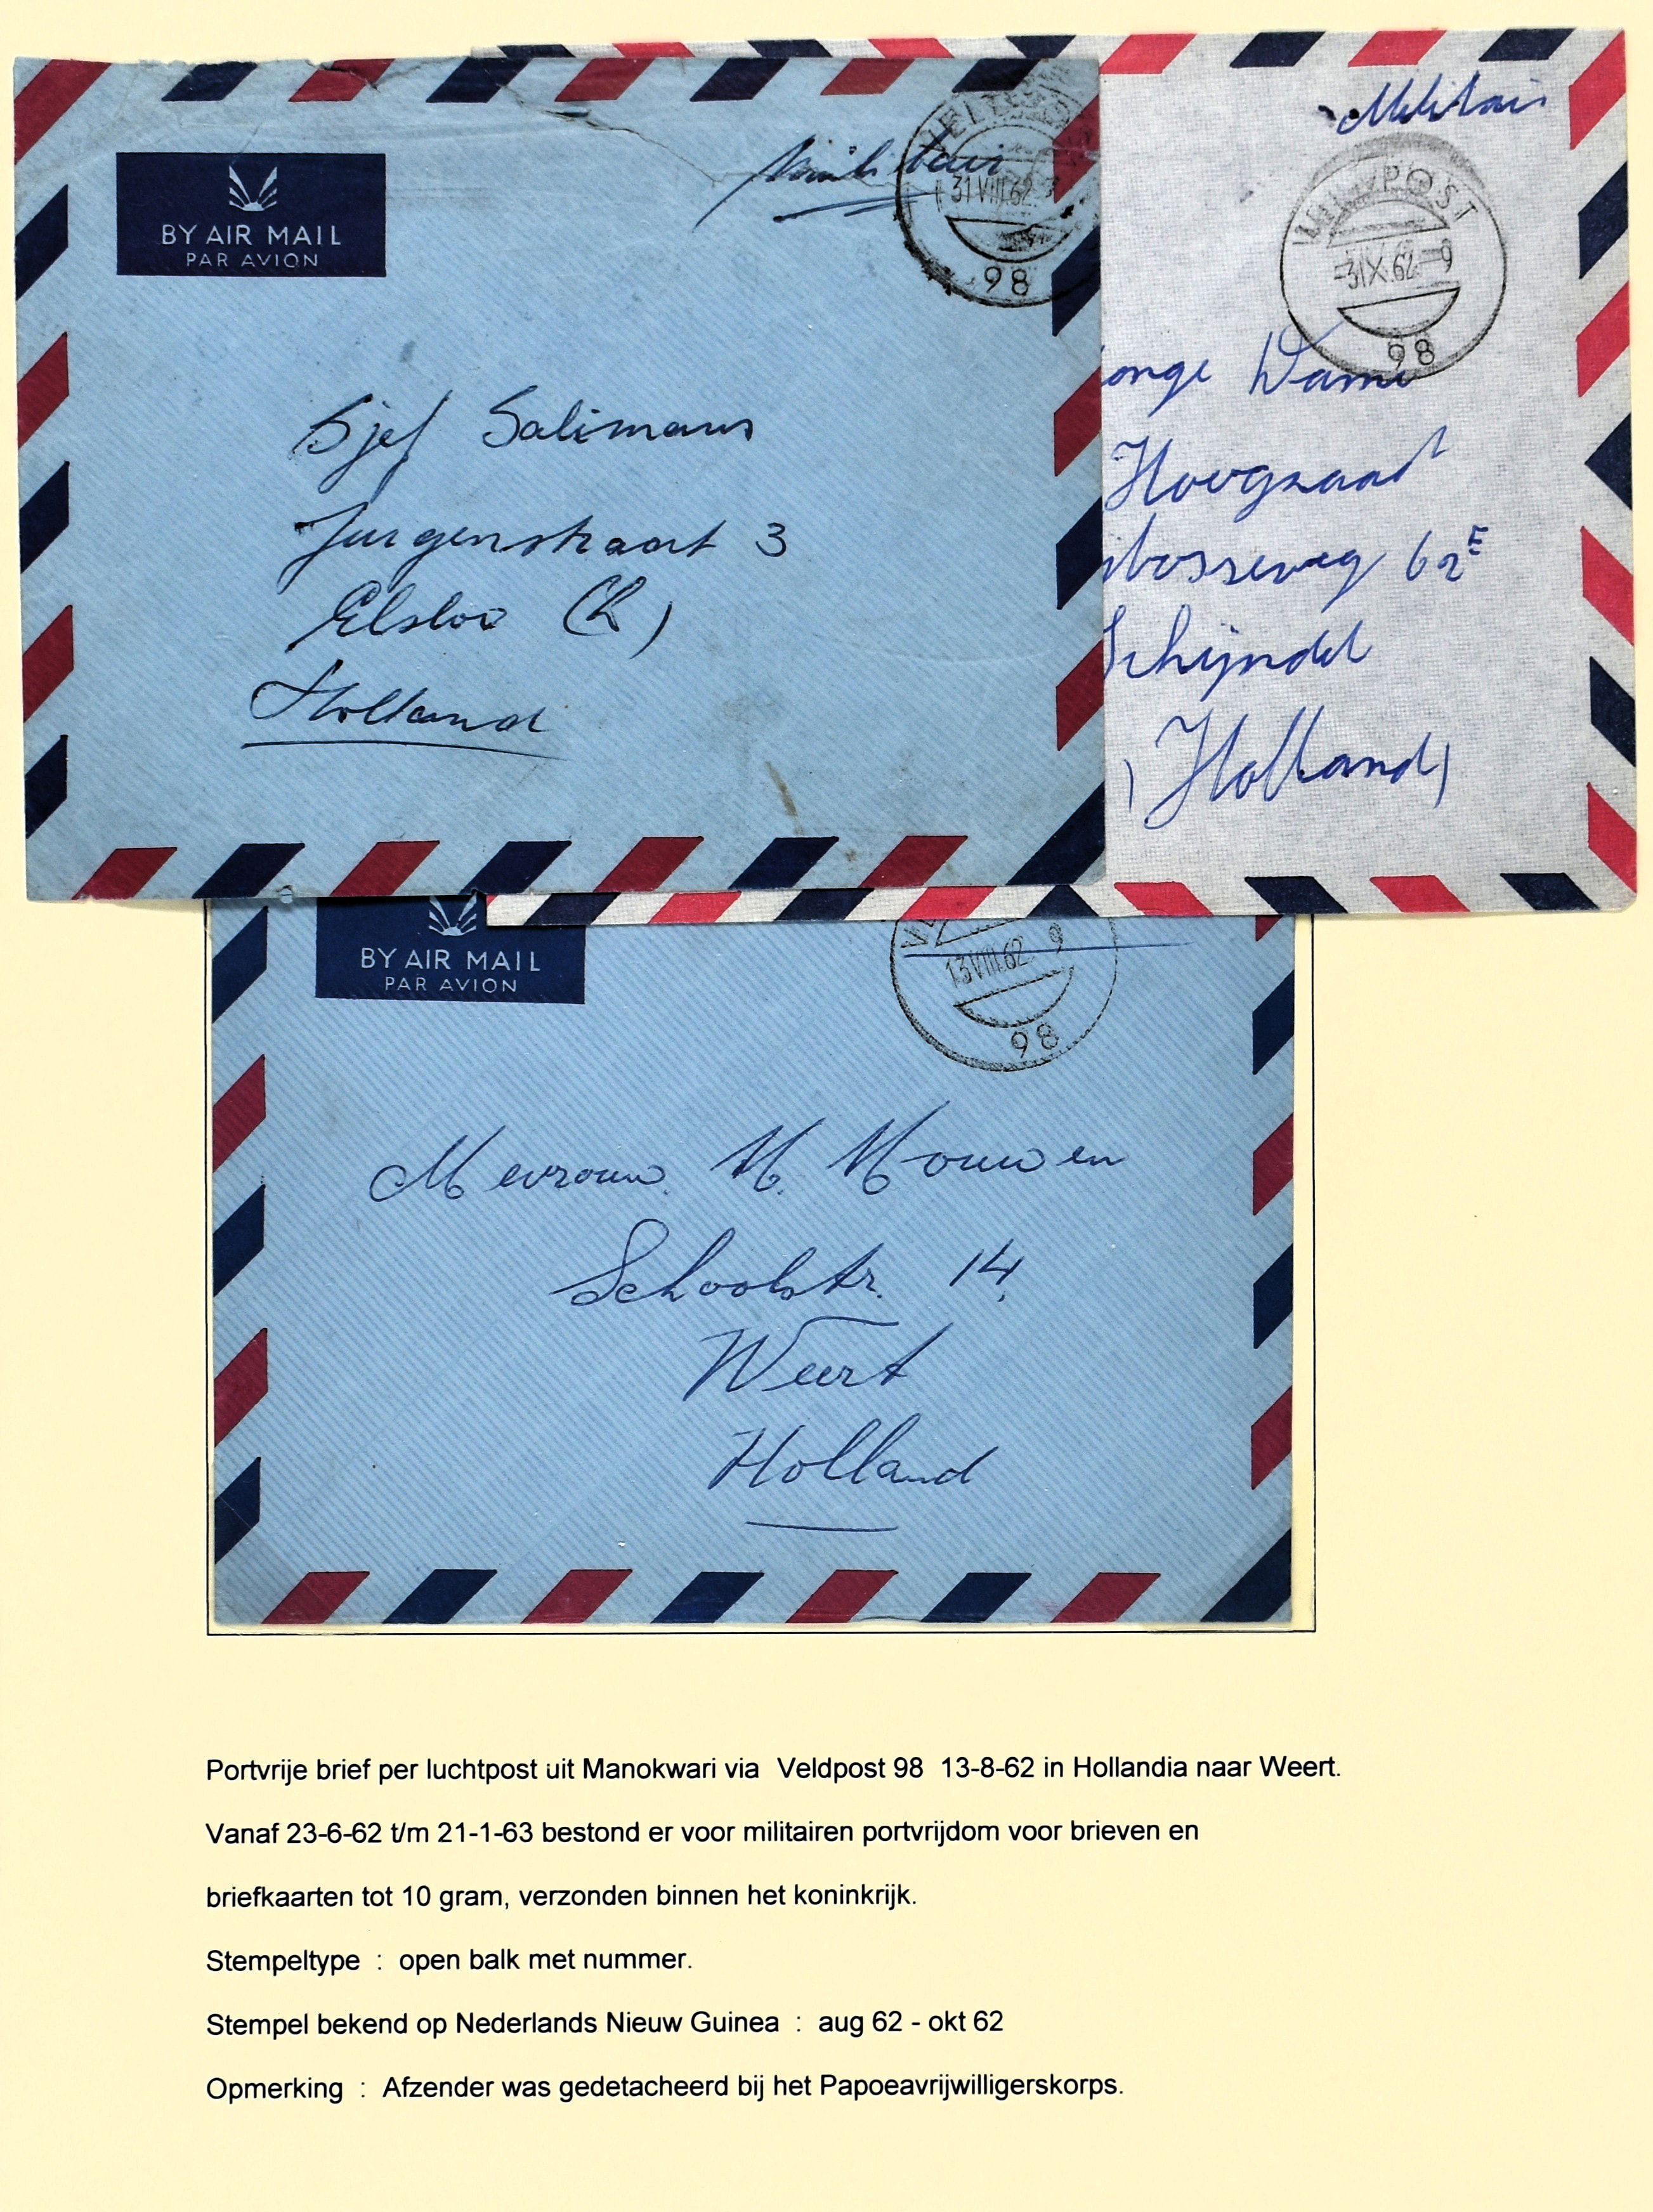 BY AIR MAIL
PAR AVION
Militair
31 VIII 62
98
Sjef Salimans
Jurgenstraat 3
Elsloo (L)
Holland
Militair
VELDPOST
-3 IX.62 - 9
98
onge Dame
Hoogzaad
bosseweg 62E
Schijndel
(Holland)
BY AIR MAIL
PAR AVION
13 VIII.62 9
98
Mevrouw. M. Mouwen
Schoolstr. 14,
Weert
Holland
Portvrije brief per luchtpost uit Manokwari via Veldpost 98 13-8-62 in Hollandia naar Weert.
Vanaf 23-6-62 t/m 21-1-63 bestond er voor militairen portvrijdom voor brieven en
briefkaarten tot 10 gram, verzonden binnen het koninkrijk.
Stempeltype : open balk met nummer.
Stempel bekend op Nederlands Nieuw Guinea : aug 62 - okt 62
Opmerking : Afzender was gedetacheerd bij het Papoeavrijwilligerskorps.